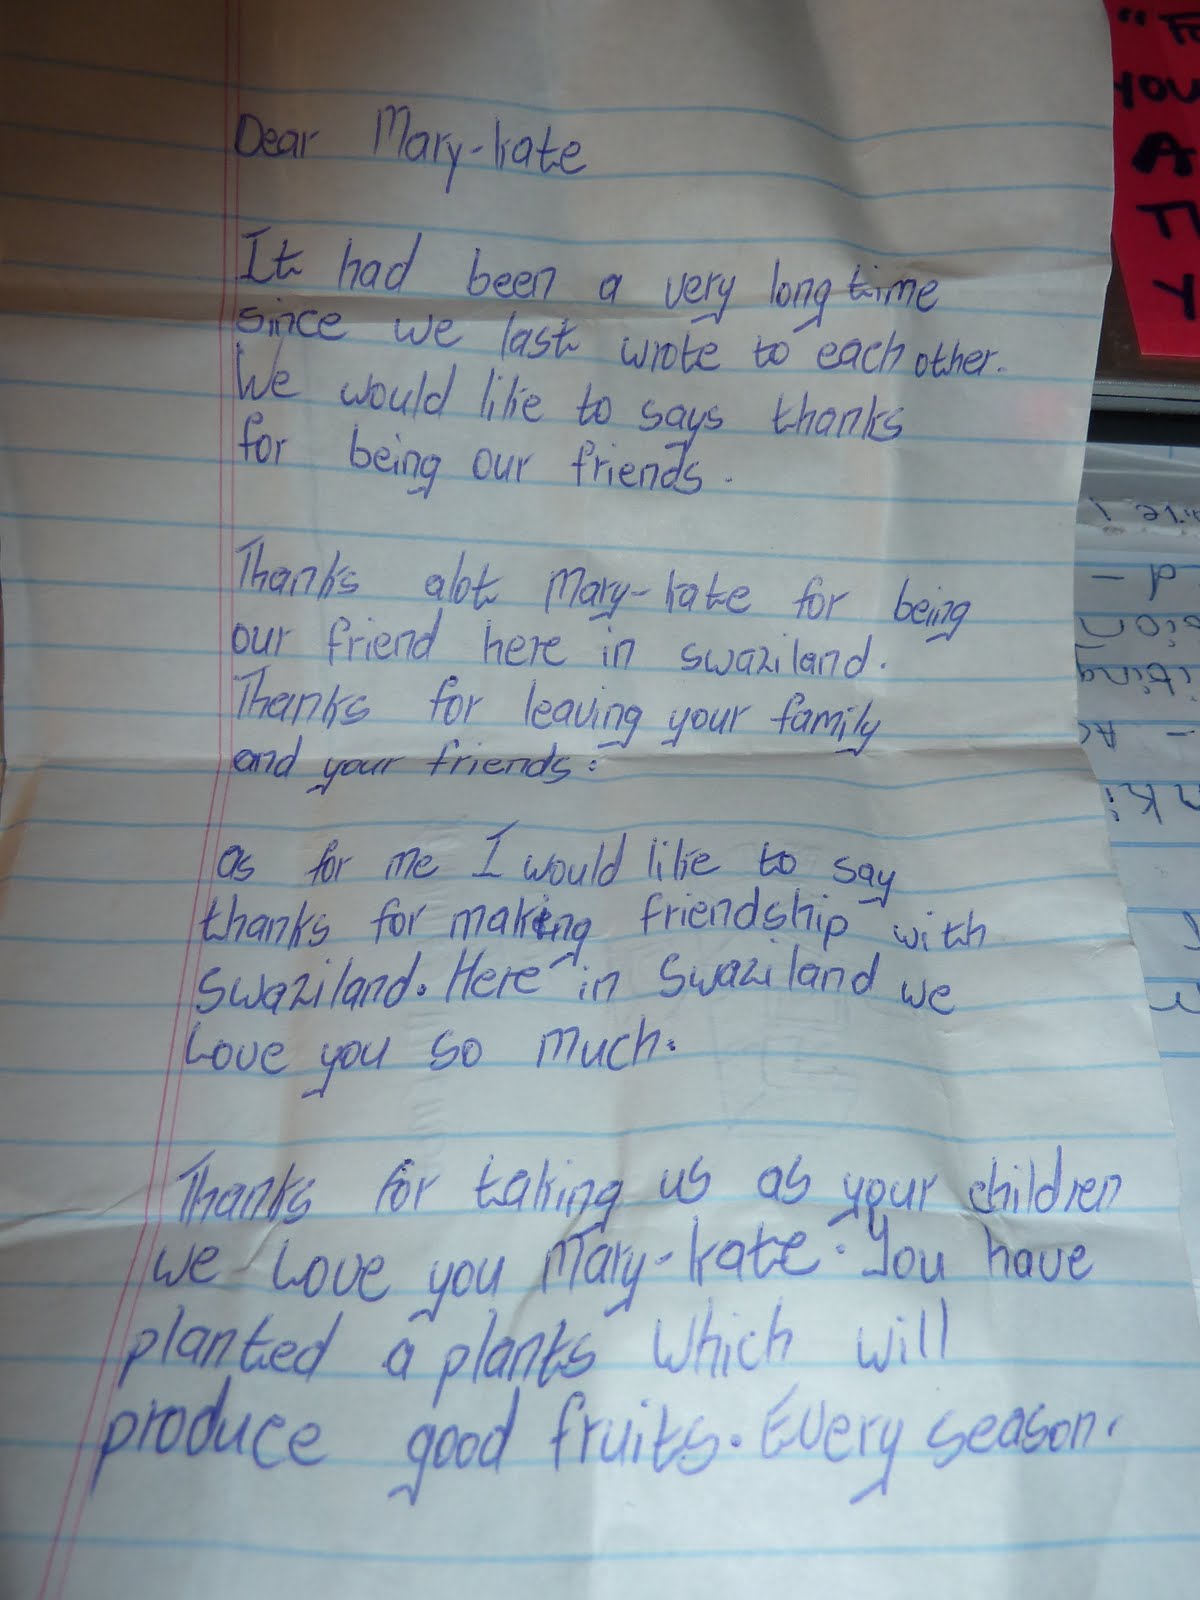 Dear Mary-kate
It had been a very long time
since we last wrote to each other.
We would like to says thanks
for being our friends.
Thanks alot Mary-kate for being
our friend here in swaziland.
Thanks for leaving your family
and your friends.
as for me I would like to say
thanks for making friendship with
swaziland. Here in Swaziland we
Love you so much.
Thanks for taking us as your children
we Love you Mary-kate. You have
planted a plants which will
produce good fruits. Every season.
YOU
A
Y